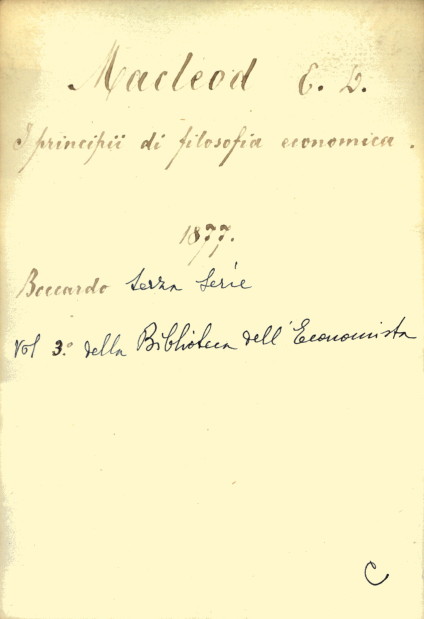 Macleod E. D.
I principii di filosofia economica.
1877.
Boccardo terza serie
Vol 3.º della Biblioteca dell'Economista
C